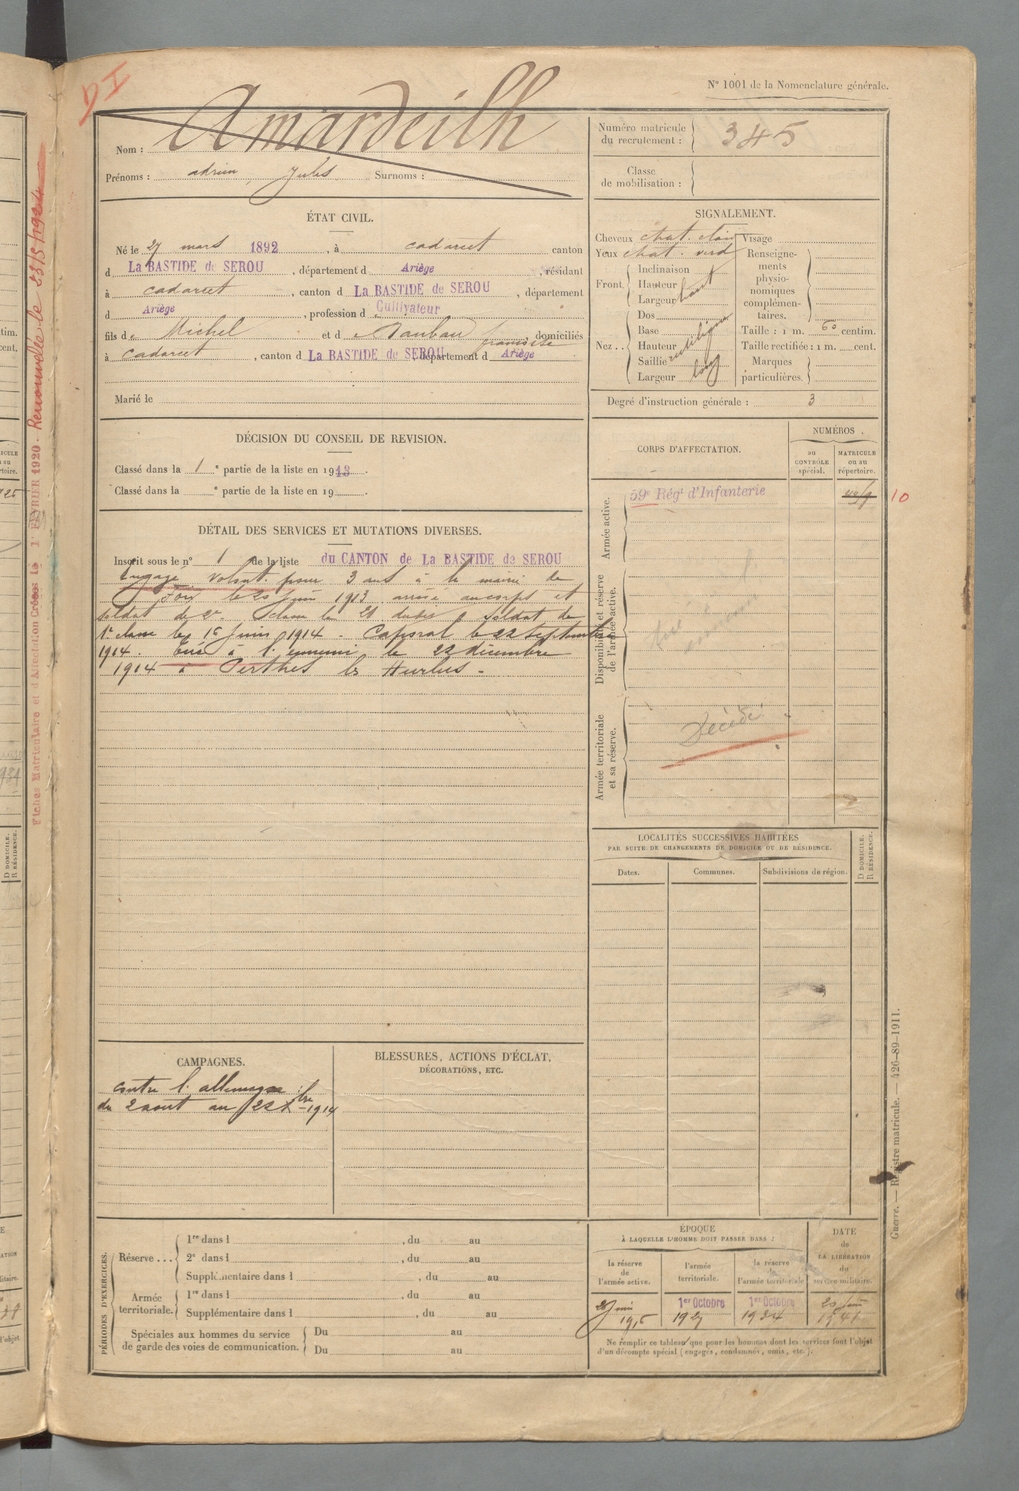 D I
N° 1001 de la Nomenclature générale.
Nom : Amardeilh
Prénoms : adrien Jules Surnoms :
Numéro matricule du recrutement : 345
Classe de mobilisation :
ÉTAT CIVIL.
Né le 27 mars 1892, à cadarcet canton
d La BASTIDE de SEROU, département d Ariège, résidant
à cadarcet, canton d La BASTIDE de SEROU, département
d Ariège, profession d Cultivateur
fils de Michel et de Dauban françoise domiciliés
à cadarcet, canton d La BASTIDE de SEROU département d Ariège
Marié le
SIGNALEMENT.
Cheveux chat. clair Visage
Yeux chat. verd
Renseignements physionomiques complémentaires.
Front. Inclinaison
Hauteur
Largeur haut
Nez.. Dos
Base
Hauteur
Saillie rectiligne
Largeur long
Taille : 1 m. 60 centim.
Taille rectifiée : 1 m. cent.
Marques particulières.
Degré d'instruction générale : 3
DÉCISION DU CONSEIL DE REVISION.
Classé dans la 1e partie de la liste en 1913.
Classé dans la e partie de la liste en 19
CORPS D'AFFECTATION.
NUMÉROS
au CONTRÔLE spécial.
MATRICULE ou au répertoire.
Armée active.
59e Régt d'Infanterie
10
Disponibilité et réserve de l'armée active.
Tué
Armée territoriale et sa réserve.
Décédé
DÉTAIL DES SERVICES ET MUTATIONS DIVERSES.
Inscrit sous le n° 1 de la liste du CANTON de La BASTIDE de SEROU
Engagé Volont. pour 3 ans à la mairie de
Foix le 20 juin 1913 arrivé au corps et
soldat de 2e classe le 21 dudit soldat de
1e classe le 16 juin 1914. Caporal le 22 septembre
1914. Tué à l'ennemi le 22 décembre
1914 à Perthes les Hurlus.
LOCALITÉS SUCCESSIVES HABITÉES
PAR SUITE DE CHANGEMENTS DE DOMICILE OU DE RÉSIDENCE.
Dates. Communes. Subdivisions de région. D. DOMICILE. R. RÉSIDENCE.
CAMPAGNES.
contre l'allemagne
du 2 aout au 22 Xbre 1914
BLESSURES, ACTIONS D'ÉCLAT,
DÉCORATIONS, ETC.
PÉRIODES D'EXERCICES.
Réserve... 1re dans l , du au
2e dans l , du au
Supplémentaire dans l , du au
Armée territoriale. 1re dans l , du au
Supplémentaire dans l , du au
Spéciales aux hommes du service de garde des voies de communication. Du au
Du au
ÉPOQUE
À LAQUELLE L'HOMME DOIT PASSER DANS :
la réserve de l'armée active.
l'armée territoriale.
la réserve de l'armée territoriale
DATE de LA LIBÉRATION du service militaire.
20 juin 1916
1er Octobre 1927
1er Octobre 1934
20 juin 1941
Ne remplir ce tableau que pour les hommes dont les services font l'objet
d'un décompte spécial (engagés, condamnés, omis, etc.).
Guerre. — Registre matricule. — 426-89-1911.
Fiches Matriculaire et d'Affectation Créées le 1er FÉVRIER 1920 - Renouvelle le 23/5/1924